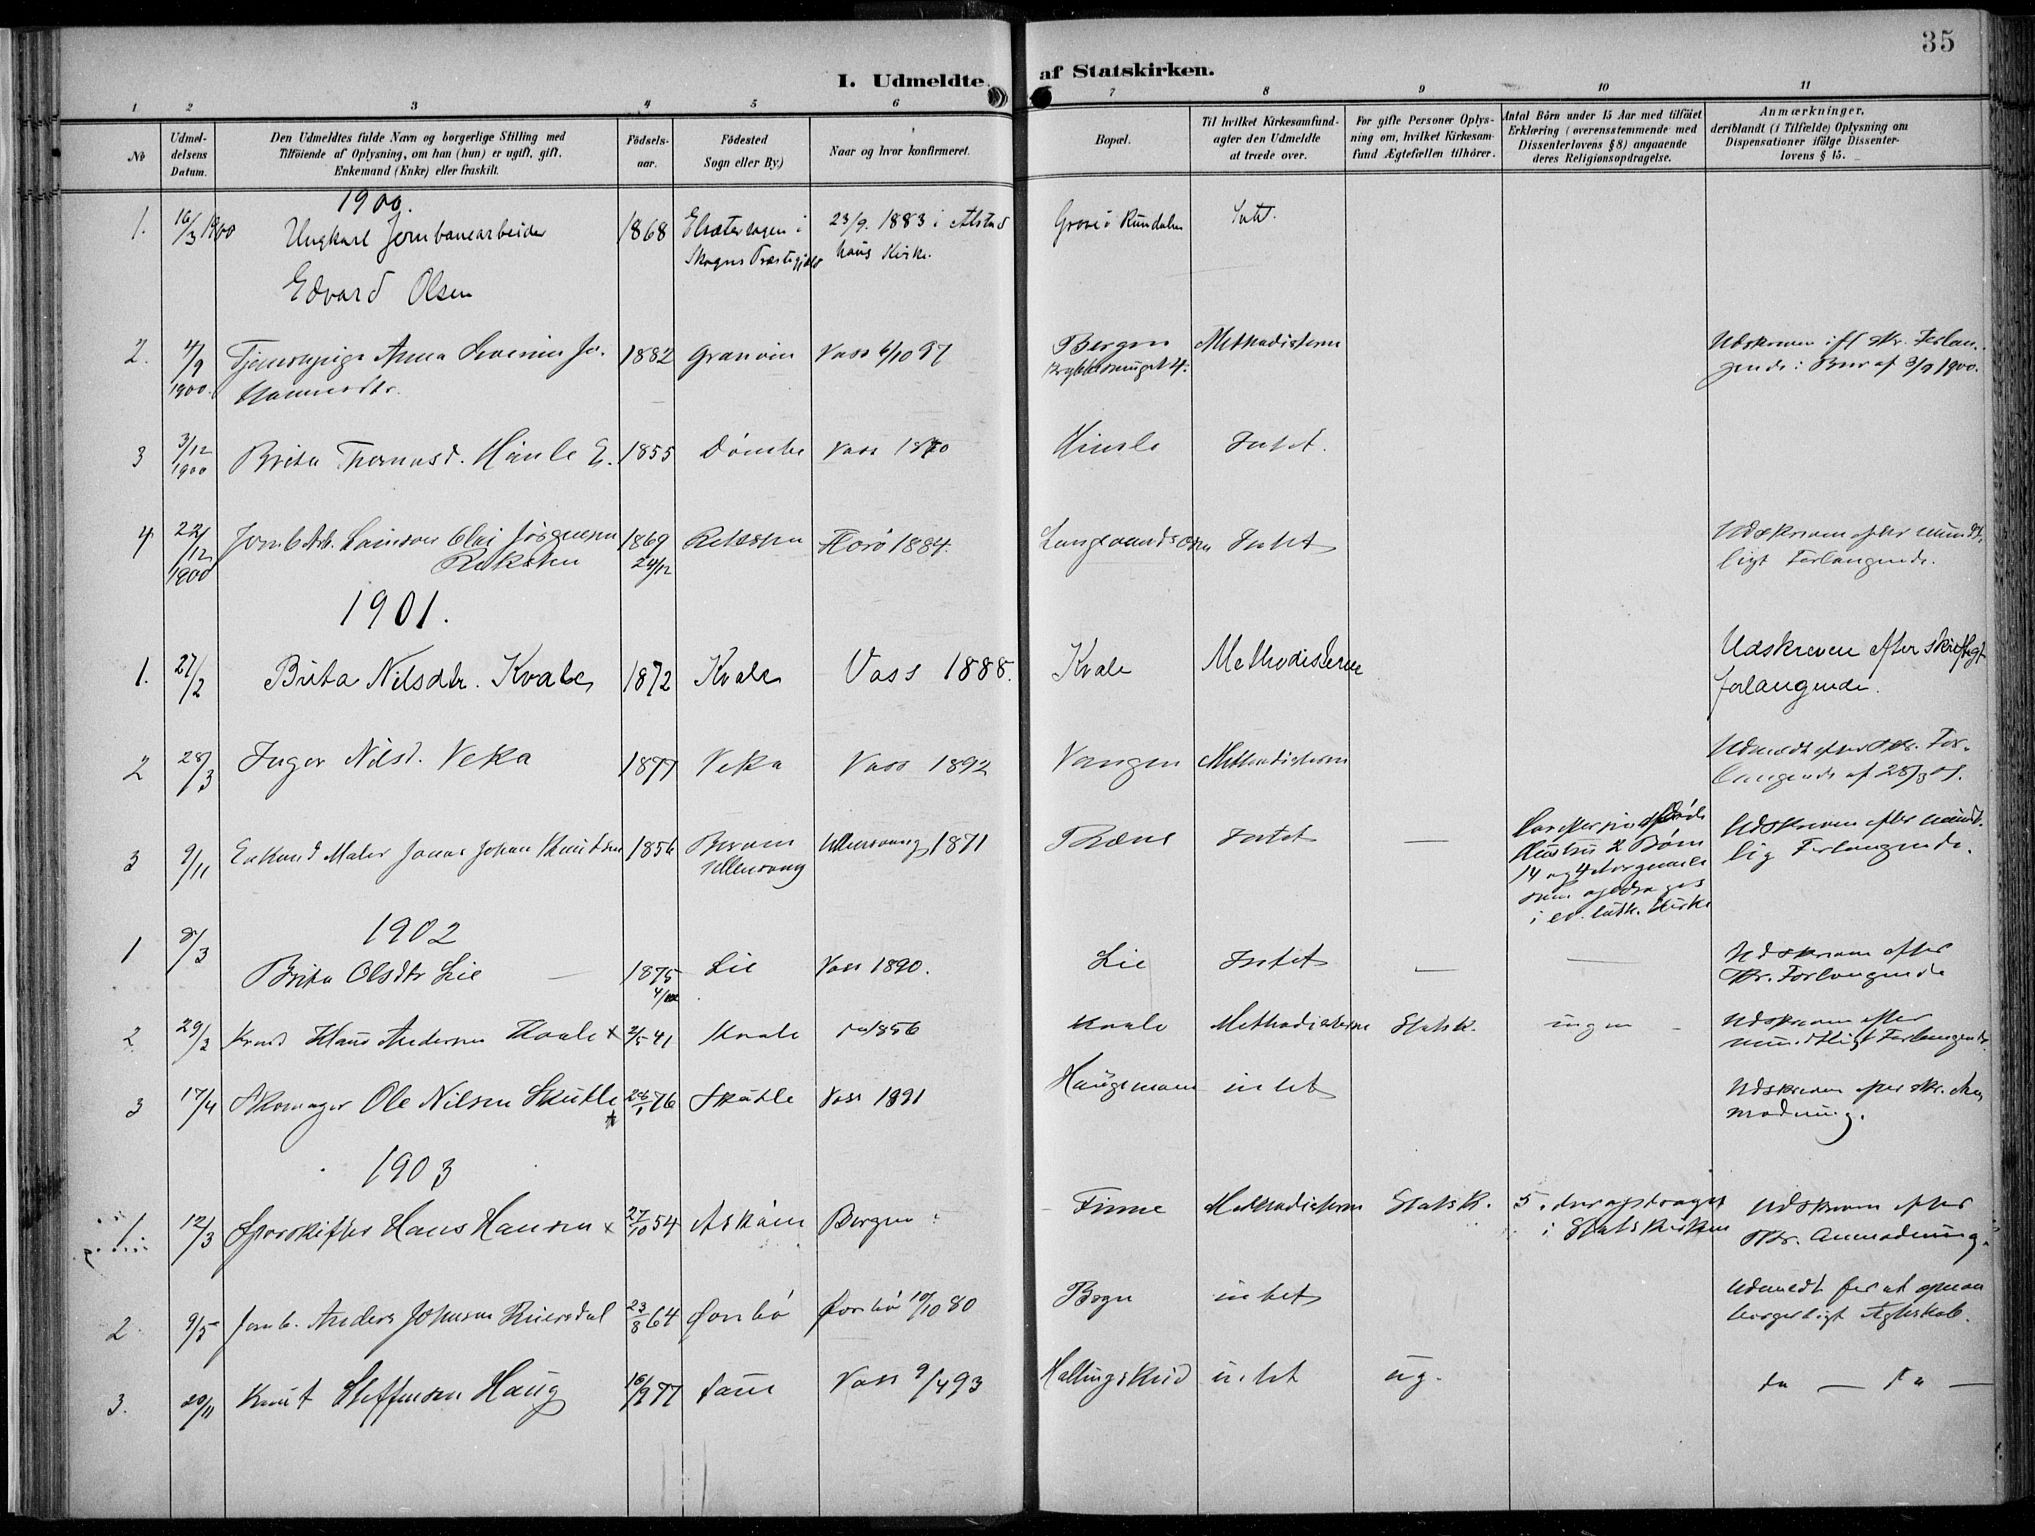 35
I. Udmeldte af Statskirken.
1 2 3 4 5 6 7 8 9 10 11
No
Udmeldelsens Datum.
Den Udmeldtes fulde Navn og borgerlige Stilling med
Tilföiende af Oplysning, om han (hun) er ugift, gift,
Enkemand (Enke) eller fraskilt.
Födselsaar.
Födested
Sogn eller By.)
Naar og hvor konfirmeret.
Bopæl.
Til hvilket Kirkesamfund
agter den Udmeldte
at træde over.
For gifte Personer Oplysning om, hvilket Kirkesamfund Ægtefællen tilhörer.
Antal Börn under 15 Aar med tilföiet
Erklæring (overensstemmende med
Dissenterlovens § 8) angaaende
deres Religionsopdragelse.
Anmærkninger,
deriblandt (i Tilfælde) Oplysning om
Dispensationer ifölge Dissenterlovens § 15.
1900.
1. 16/3 1900 Ungkarl Jernbanearbeider 1868 i 23/9. 1883 i Alstad
haus Kirke.
Edvard Olsen
2. 4/9 1900. Tjenestepige Anna 1882 Granvin Voss 4/10 97 Bergen Methodisterne
3 3/12 1900 Brita Thomasd. Himle E. 1855 Dömbe Voss 1870 Himle Intet.
4 22/12 1900 Jörgensen 1869 24/12 1884. Intet Udskreven efter mundt
ligt Forlangende.
1901.
1. 27/2 Brita Nilsdtr. Kvale 1872 Kvale Voss 1888. Kvale Methodisterne Udskreven efter skriftligt
forlangende.
2 28/3 Inger Nilsd. Veka 1877 Veka Voss 1892 Vangen Methodisterne Udmeldt efter skr. For-
langende af 28/3 01.
3 9/11 Enkemd Maler Jonas Johan Knudsen 1856 Ullensvang Ullensvang 1871 Intet — Udskreven efter mundt-
lig Forlangende.
14 og 4 Aar gamle
som opdrages
i ev. luth. Kirke
1902
1 8/3 Brita Olsdtr Lie — 1875 Lie Voss 1890. Lie Intet — — Udskreven efter
skr. Forlangende
2. 29/3 Hans Andersen Kvale x 2/5 41 Kvale 1856 Kvale Methodisterne Statsk. ingen - Udskreven efter
mundtligt Forlangende.
3 17/4 Skomager Ole Nilsen Skutle 26/1 76 Skutle Voss 1891 Haugamoen intet Udskreven efter skr. An-
modning.
1903
1. 12/3 Sporskifter Hans Hansen x 27/10 54 Askøen Bergen Finne Methodisterne Statsk. 5. der opdrages
i Statskirken Udskreven efter
skr. Anmodning.
2. 9/5 Jernb. Anders Johnsen 23/8 64 10/10 80 intet Udmeldt for at opnaa
borgerligt Ægteskab.
3. 20/11 Knut Steffensen Haug 77 Voss 9/4 93 Hallingskeid intet ug. da — da —